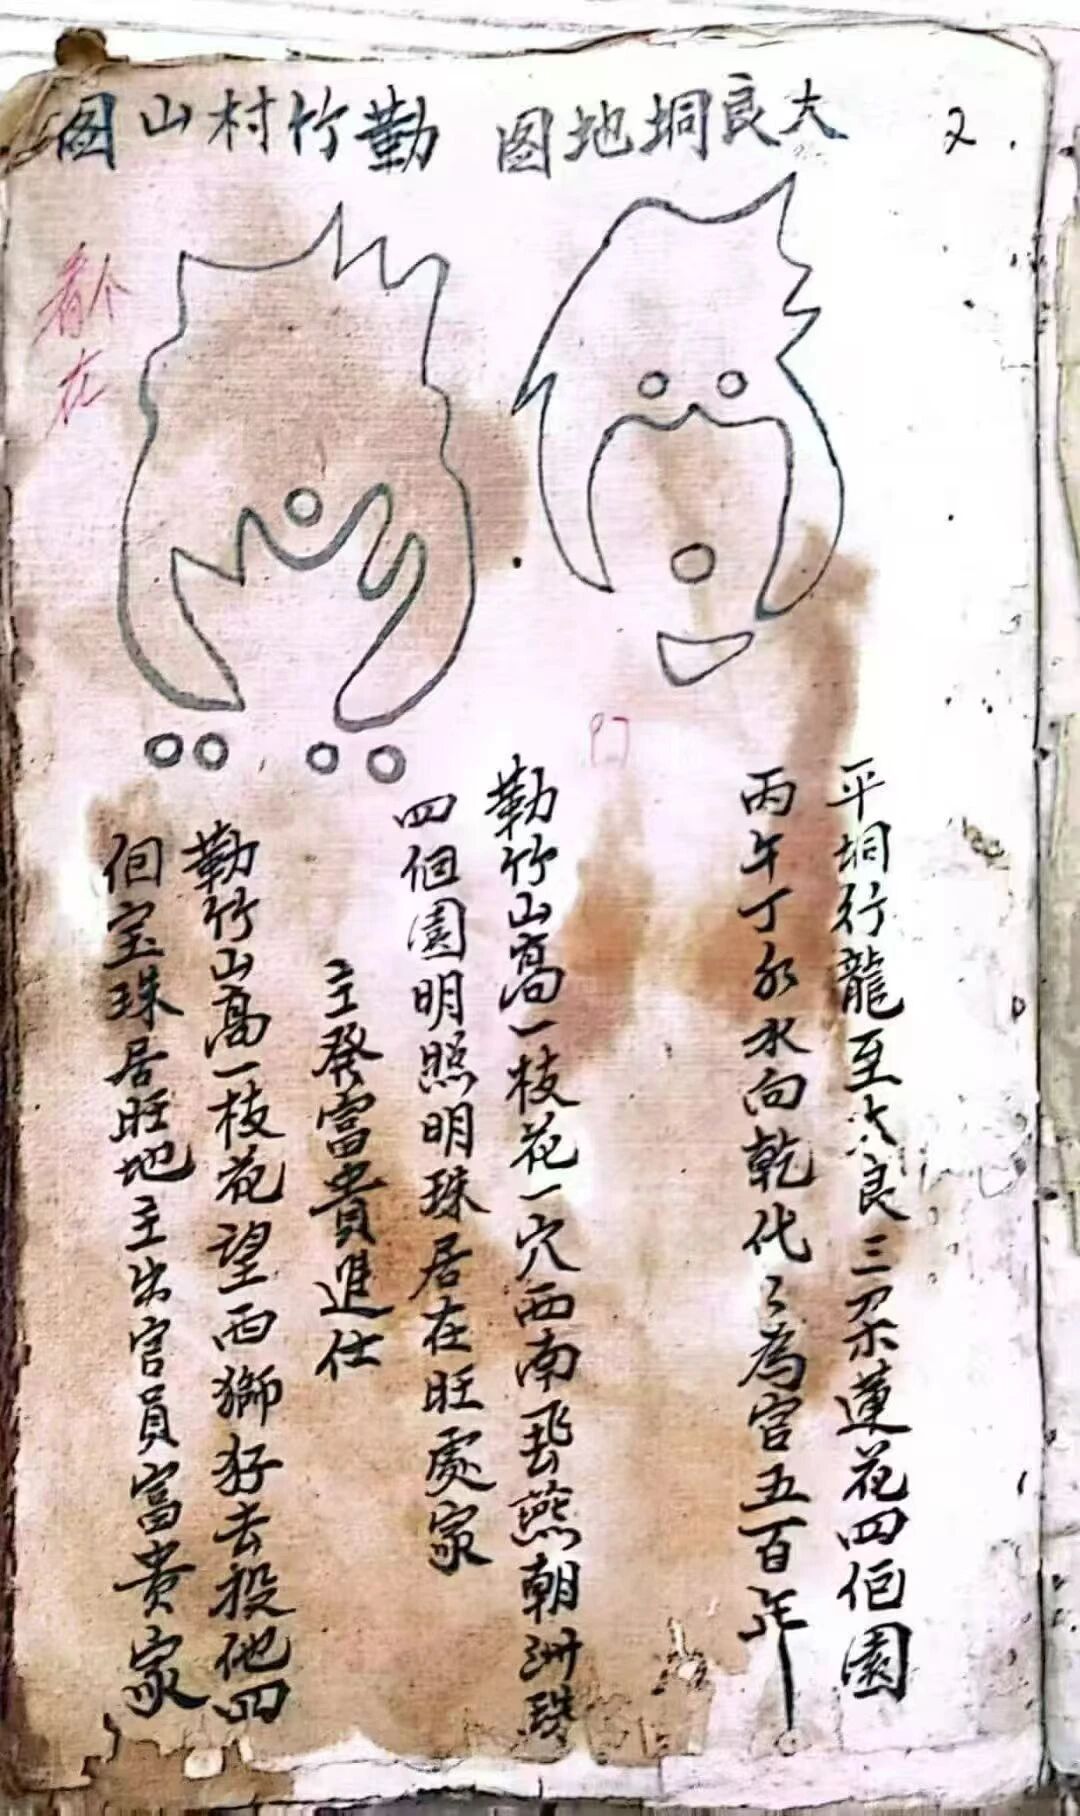 2
大良垌地图
勤竹村山图
看个在
平垌行龍至大良三朵蓮花四佰園
丙午丁水向乾代々為官五百年
勒竹山高一枝花一穴西南飛燕朝洲珠
四個園明照明珠居在旺處家
主發富貴進仕
勒竹山高一枝花望西獅好去投他四
個宝珠居旺地主出官員富贵家